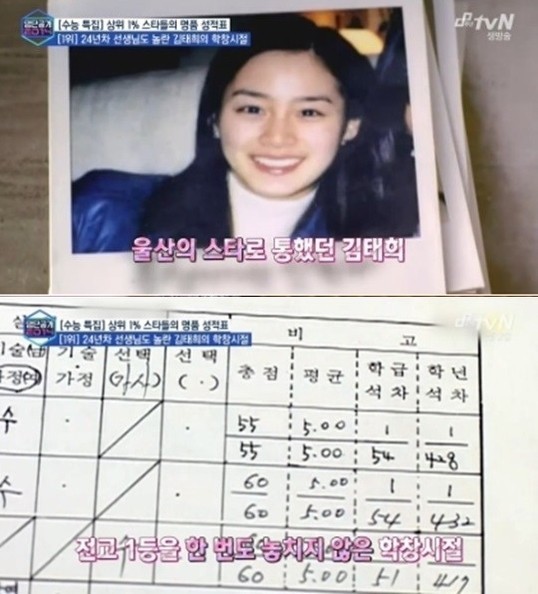 명단공개
2014
[수능 특집] 상위 1% 스타들의 명품 성적표
[1위] 24년차 선생님도 놀란 김태희의 학창시절
tvN
생방송
울산의 스타로 통했던 김태희
명단공개
2014
[수능 특집] 상위 1% 스타들의 명품 성적표
[1위] 24년차 선생님도 놀란 김태희의 학창시절
tvN
비 고
기술(남) 기술 선택 선택 총점 평균 학급 학년
가정(여) 가정 (가사) ( . ) 석차 석차
수 55 5.00 1 1
55 5.00 54 428
수 60 5.00 1 1
60 5.00 54 432
전교 1등을 한 번도 놓치지 않은 학창시절
60 5.00 51 417